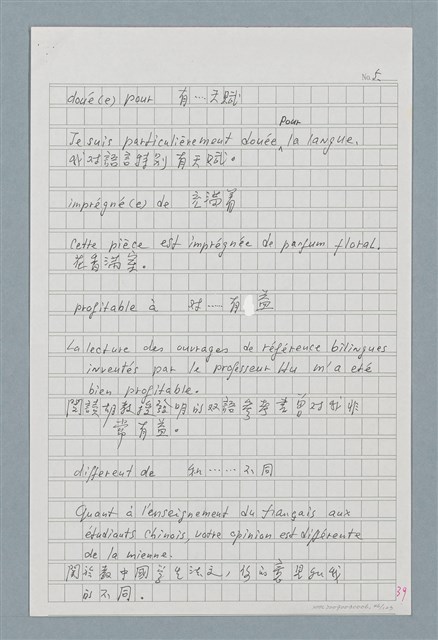 No. 5
doué(e) pour 有…天賦
Pour
Je suis particulièrement douée la langue.
我对語言特别有天賦。
imprégné(e) de 充滿著
Cette pièce est imprégnée de parfum floral.
花香滿室。
profitable à 对……有益
La lecture des ouvrages de référence bilingues
inventés par le professeur Hu m'a eté
bien profitable.
閱讀胡教授發明的双語參考書曾对我非
常有益。
different de 和……不同
Quant à l'enseignement du français aux
étudiants chinois, votre opinion est différente
de la mienne.
関於教中國學生法文，你的意見和我
的不同。
39